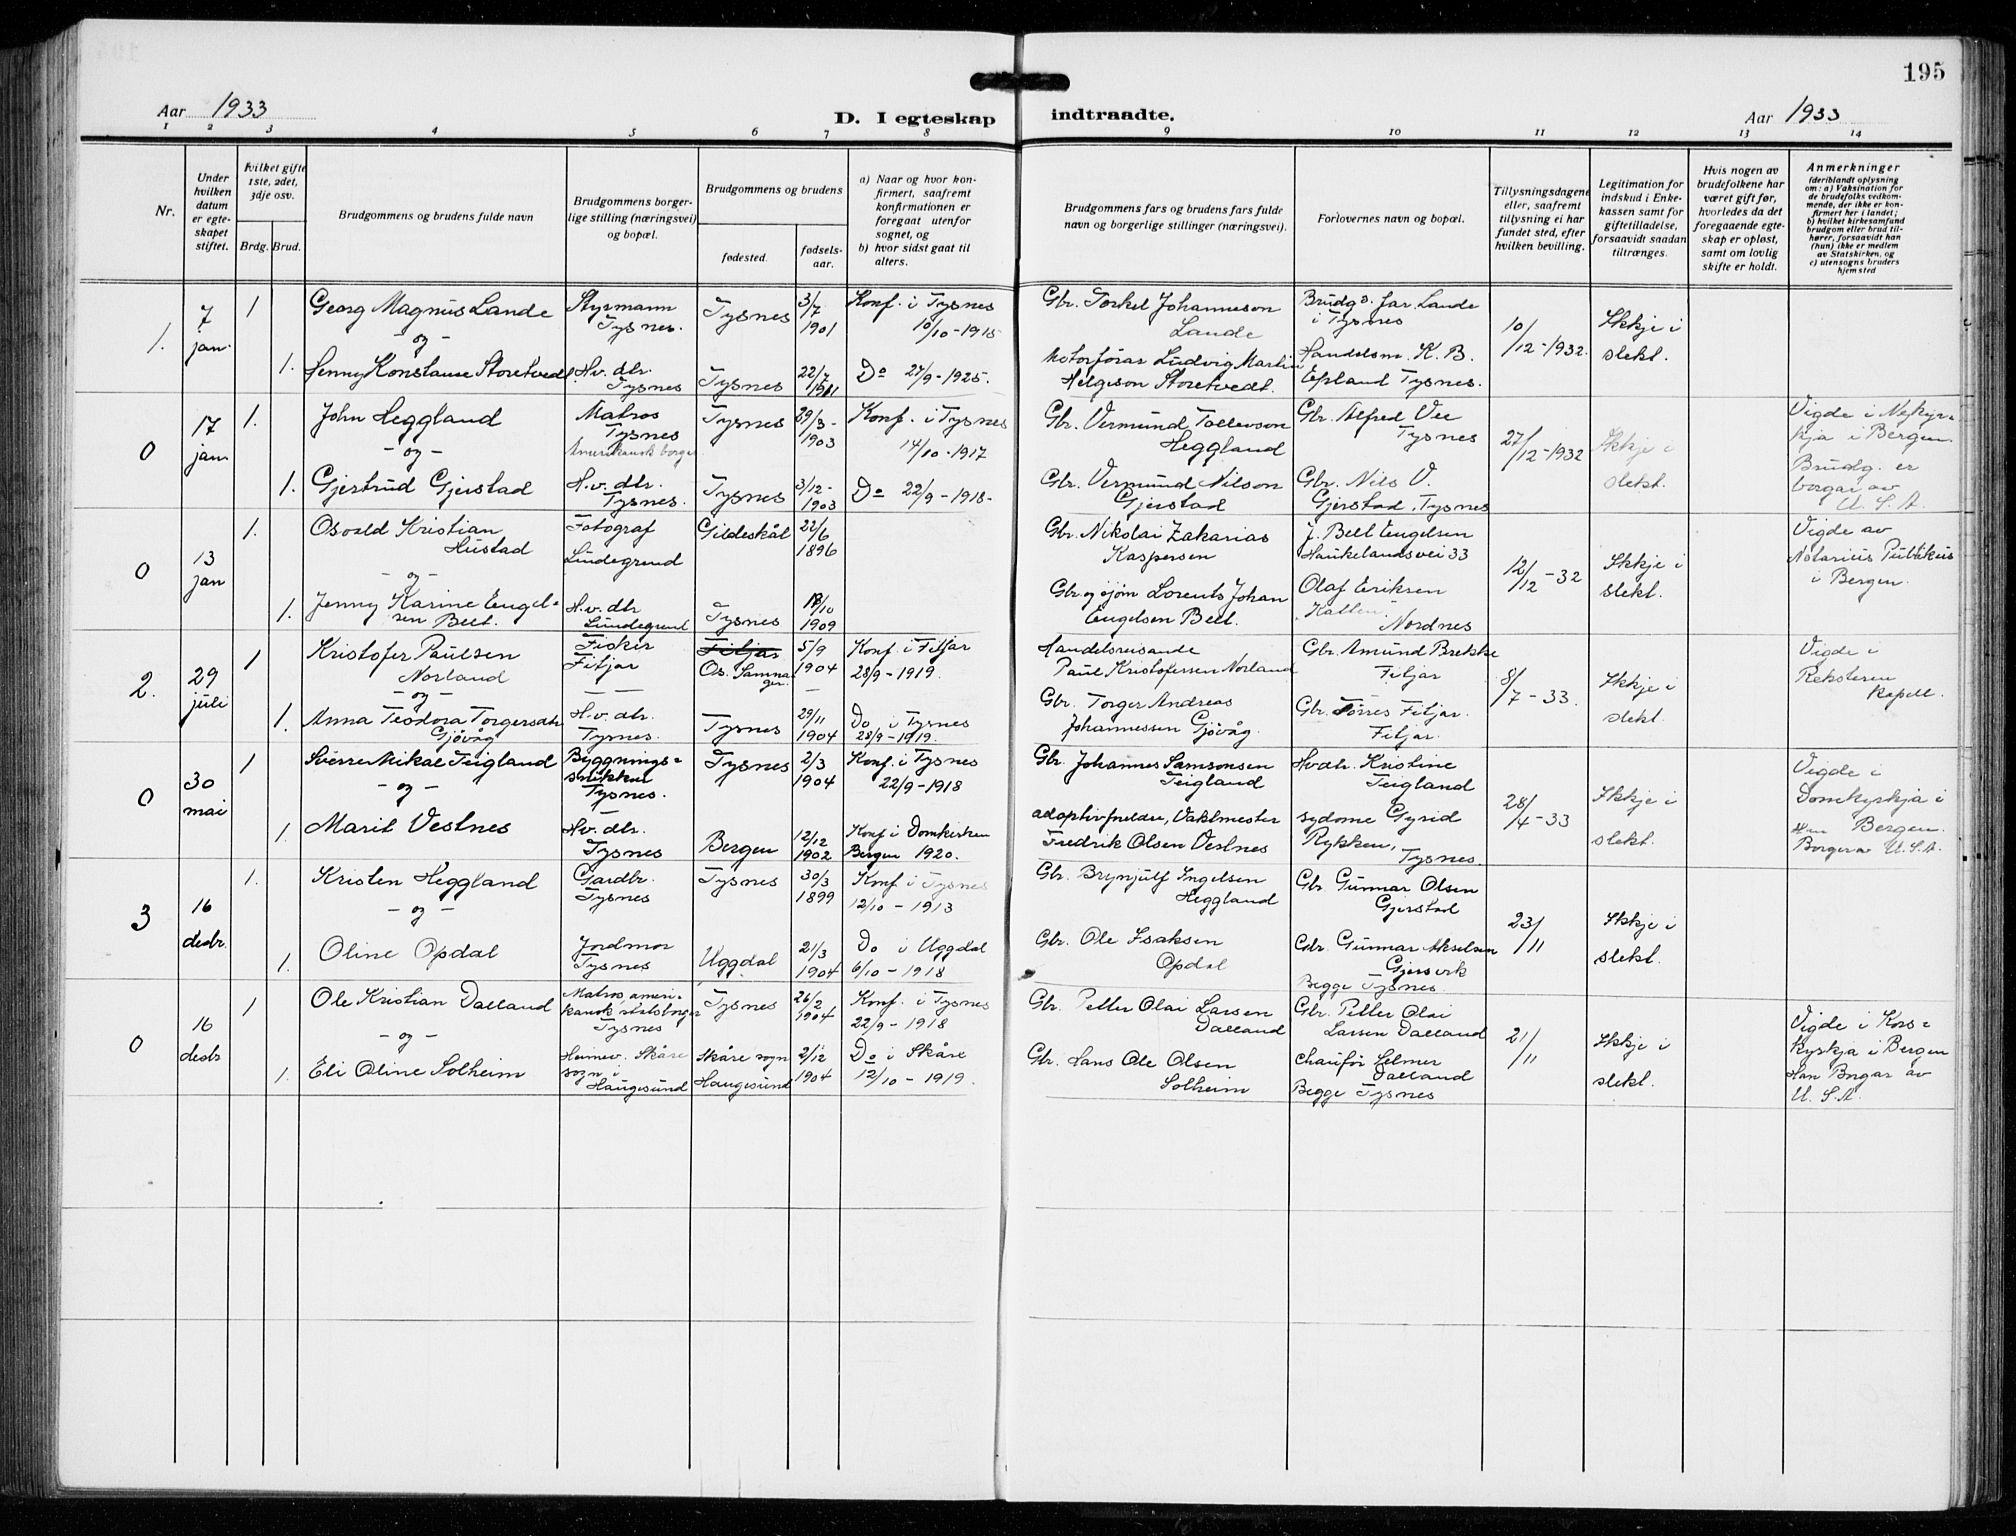 195
Aar 1933
D. I egteskap indtraadte.
Aar 1933
1 2 3 4 5 6 7 8 9 10 11 12 13 14
Nr.
Under hvilken datum er egteskapet stiftet.
Hvilket gifte 1ste, 2det, 3dje osv.
Brdg. Brud.
Brudgommens og brudens fulde navn
Brudgommens borgerlige stilling (næringsvei) og bopæl.
Brudgommens og brudens
fødested.
fødselsaar.
a) Naar og hvor konfirmert, saafremt konfirmationen er foregaat utenfor sognet, og
b) hvor sidst gaat til alters.
Brudgommens fars og brudens fars fulde navn og borgerlige stillinger (næringsvei).
Forlovernes navn og bopæl.
Tillysningsdagene eller, saafremt tillysning ei har fundet sted, efter hvilken bevilling.
Legitimation for indskud i Enkekassen samt for giftetilladelse, forsaavidt saadan tiltrænges.
Hvis nogen av brudefolkene har været gift før, hvorledes da det foregaaende egteskap er opløst, samt om lovlig skifte er holdt.
Anmerkninger
(deriblandt oplysning om: a) Vaksination for de brudefolks vedkommende, der ikke er konfirmert her i landet; b) hvilket kirkesamfund brudgom eller brud tilhører, forsaavidt han (hun) ikke er medlem av Statskirken, og c) utensogns bruders hjemsted
1. 7 jan. 1
Georg Magnus Lande
Styrmann Tysnes.
Tysnes
3/7 1901
Konf. i Tysnes 10/10-1915
Gbr. Torkel Johanneson Lande
Brudgs. far. Lande i Tysnes
10/12-1932.
Ikkje i slekt.
- og -
1. Jenny Konstanse Storetvedt
Hv. dtr. Tysnes
Tysnes
22/7 1911
Do 27/9-1925.
Motorförar Ludvig Martin Helgeson Storetvedt.
Handelsm. K. B. Epland Tysnes.
0 17 jan. 1.
John Heggland
Matros Tysnes Amerikansk borger
Tysnes
29/3- 1903
Konf. i Tysnes 14/10-1917
Gbr. Vermund Tollevson Heggland
Gbr. Alfred Vee Tysnes
27/12-1932
Ikkje i slekt.
Vigde i Nykyrkja i Bergen. Brudg. er borgar av U. S. A.
- og -
1. Gjertrud Gjerstad
H.v. dtr. Tysnes.
Tysnes
3/12- 1903
Do 22/9-1918-
Gbr. Vermund Nilson Gjerstad
Gbr. Nils V. Gjerstad, Tysnes
0 13 jan 1.
Osvald Kristian Hustad
Fotograf Lindegrend
Gildeskål
22/6 1896
Gbr. Nikolai Zakarias Kaspersen
J. Belt Engelsen Haukelandsvei 33
12/12-32
Ikkje i slekt.
Vigde av Notarius Publikus i Bergen.
- og -
1. Jenny Karine Engelsen Belt.
H.v. dtr Lundegrend
Tysnes
18/10 1909
Gbr. og sjöm Lorents Johan Engelsen Belt.
Olaf Eriksen Nordnes
2. 29 juli 1
Kristofer Paulsen Norland
Fisker Fitjar
Fitjar Os. Samnager.
5/9 1904
Konf. i Fitjar 28/9-1919.
Handelsreisande Paul Kristofersen Norland
Gbr. Amund Brekke Fitjar
8/7-33.
Ikkje i slekt.
Vigde i Reksteren kapell.
- og -
1. Anna Teodora Torgersdtr Gjövåg
H.v. dtr. Tysnes.
Tysnes
29/11 1904
Do i Tysnes 28/9-1919.
Gbr. Torger Andreas Johannessen Gjövåg.
Gbr. Törres Fitjar. Fitjar.
0 30 mai 1
Sverre Mikal Teigland
Byggningssnikkar Tysnes.
Tysnes
2/3 1904
Konf. i Tysnes 22/9-1918
Gbr. Johannes Samsonsen Teigland
Hvdtr. Kristine Teigland
28/4-33
Ikkje i slekt.
Vigde i Domkyrkja i Bergen. Han Borger av U.S.A.
- og -
1. Marit Vestnes
Hv. dtr. Tysnes
Bergen
12/12 1902
Konf i Domkirken Bergen 1920.
adoptivforeldre, Vaktmester Fredrik Olsen Vestnes
sydome Gyrid Rykken, Tysnes
3 16 desbr. 1.
Kristen Heggland
Gardbr. Tysnes
Tysnes
30/3 1899
Konf. i Tysnes 12/10-1913
Gbr. Brynjulf Ingelsen Heggland
Gbr. Gunnar Olsen Gjerstad
23/11
Ikkje i slekt.
- og -
1. Oline Opdal
Jordmor Tysnes
Uggdal
21/3 1904
Do i Uggdal 6/10-1918
Gbr. Ole Isaksen Opdal
Gbr. Gunnar Akselsen Gjersvik
Begge Tysnes.
0 16 desbr 1
Ole Kristian Dalland
Matros, amerikansk statsborger Tysnes
Tysnes
26/2 1904
Konf. i Tysnes 22/9-1918
Gbr. Petter Olai Larsen Dalland
Gbr. Petter Olai Larsen Dalland
21/11
Ikkje i slekt.
Vigde i Korskyrkja i Bergen Han Borgar av U. S. A.
- og -
1. Eli Oline Solheim
Heimev. Skåre sogn i Haugesund
Skåre sogn Haugesund
2/12 1904
Do i Skåre 12/10-1919.
Gbr. Hans Ole Olsen Solheim
Chaufför Helmer Dalland
Begge Tysnes